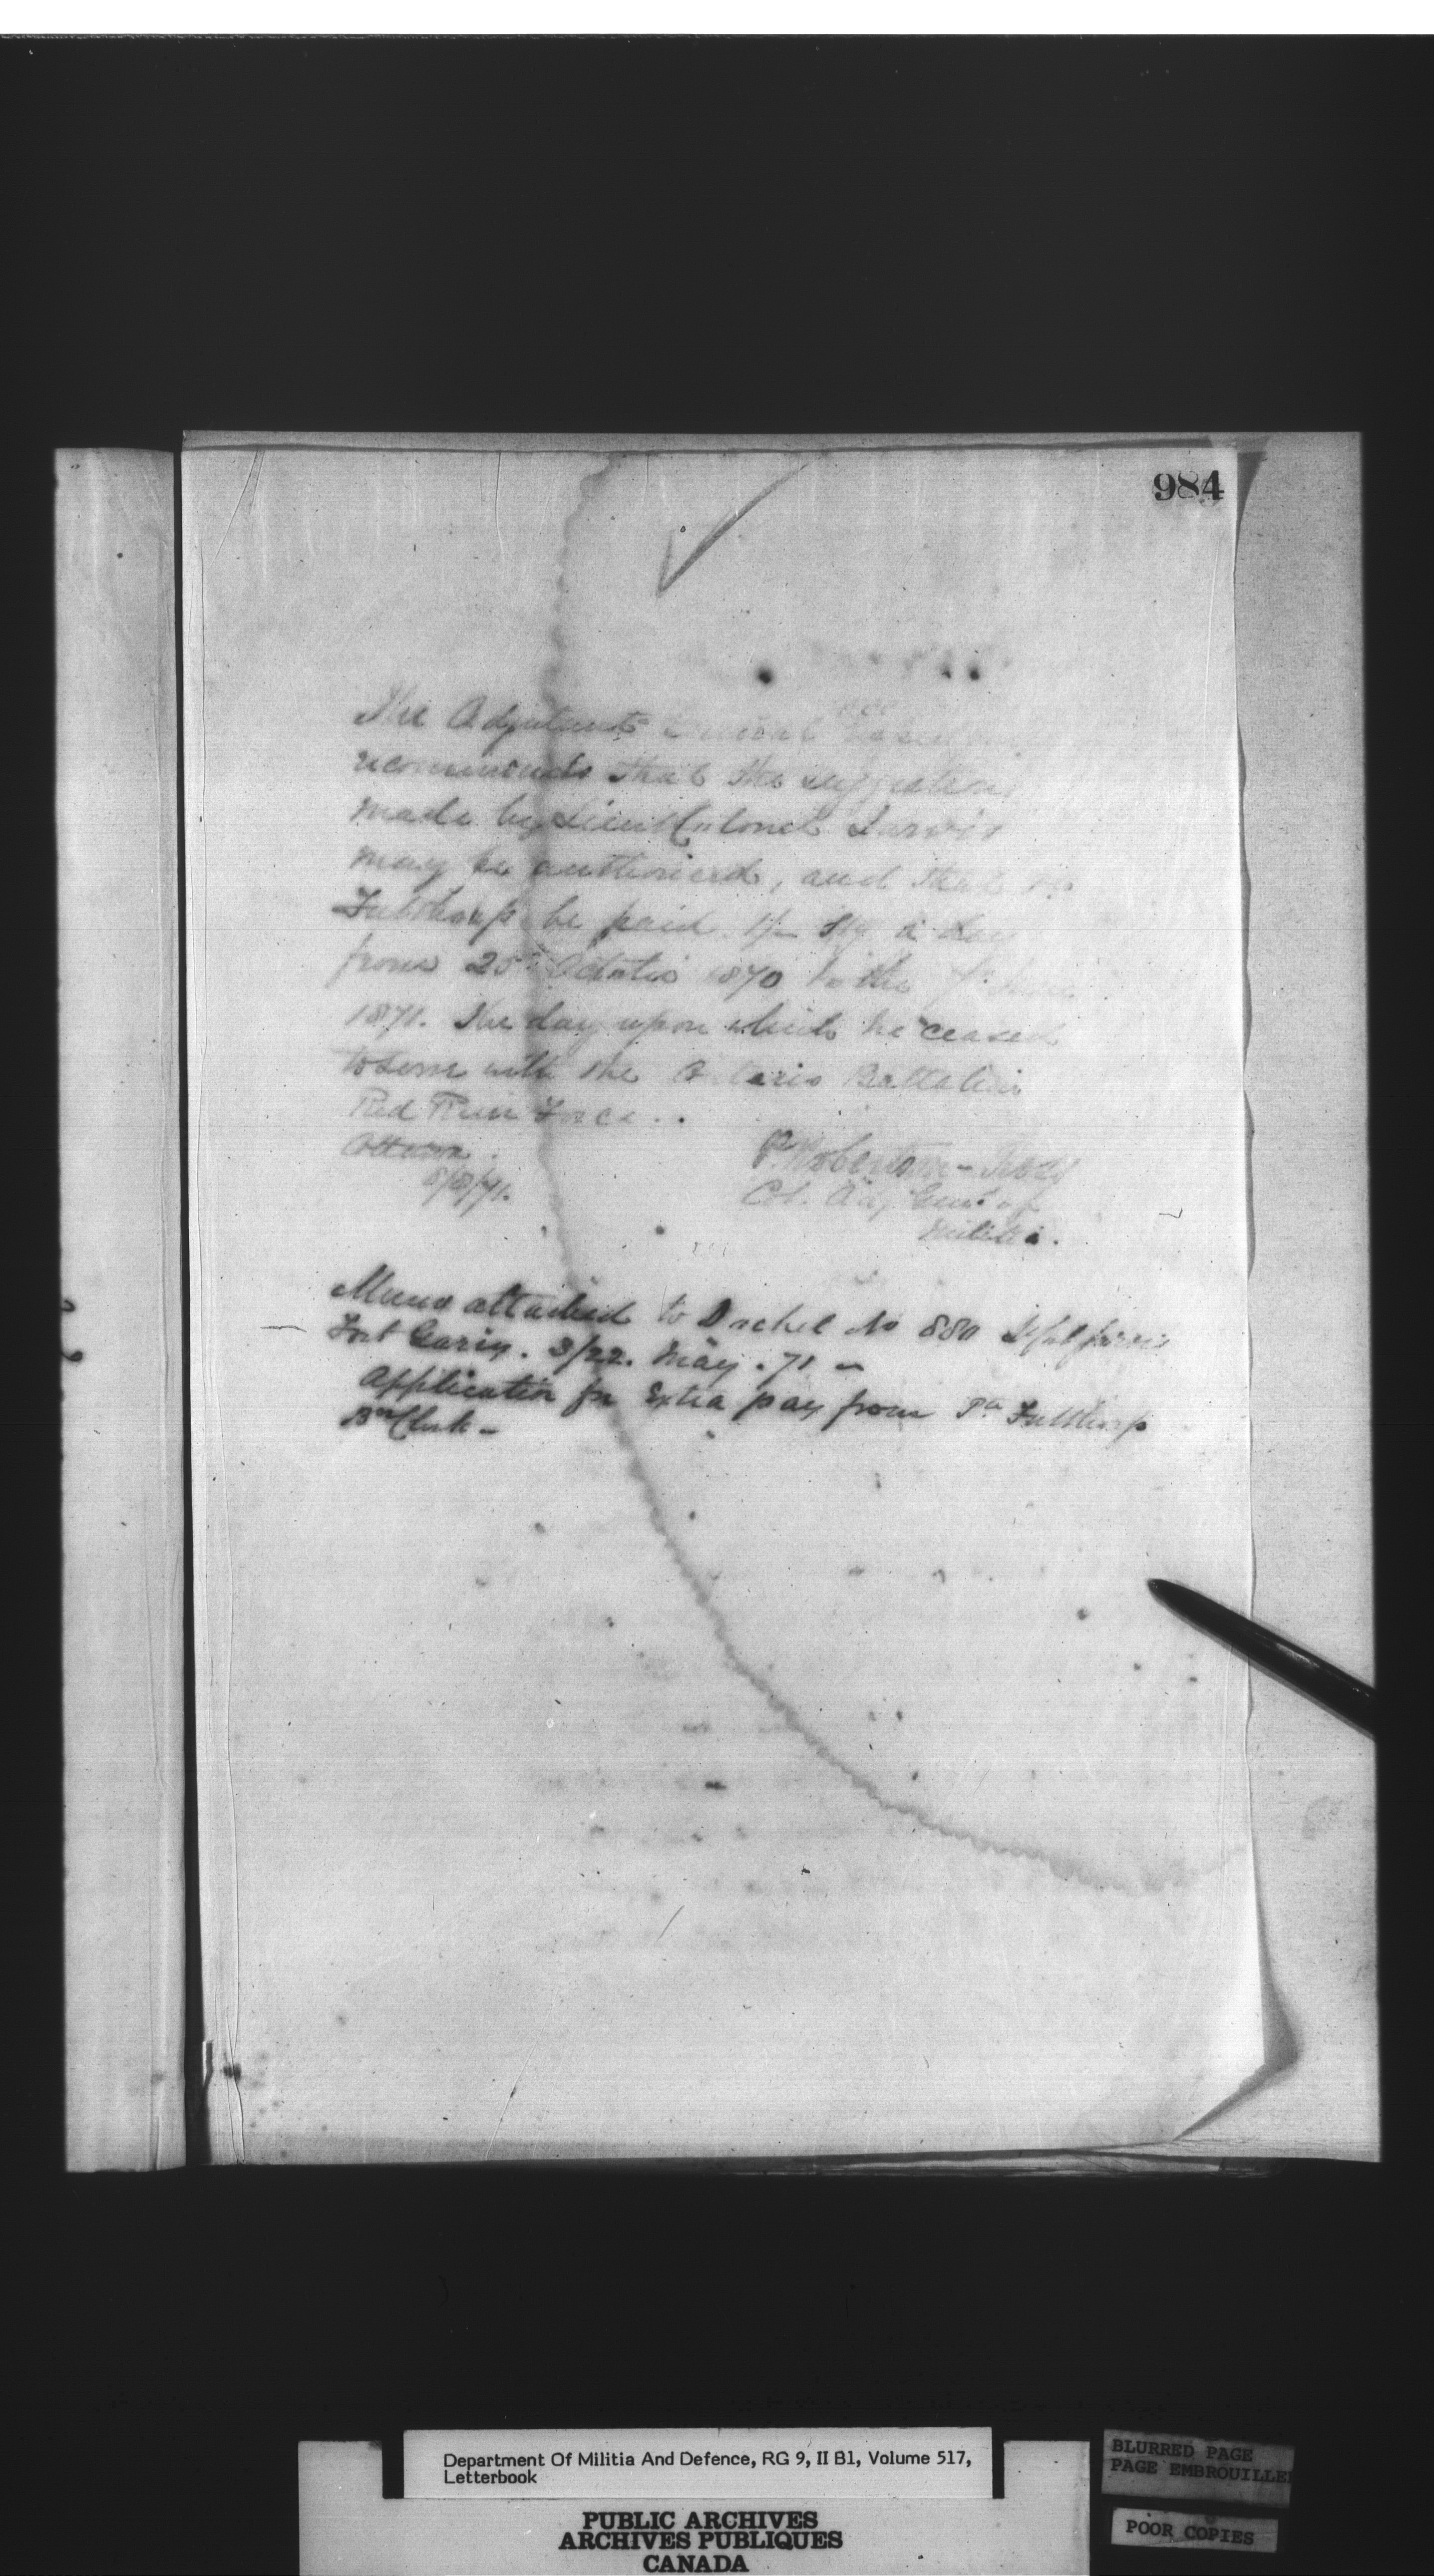 984
The Adjutant General
recommends that the suggestion
made by Lieut Colonel Jarvis
may be authorized, and that
Fulthorp be paid 1/- Stg a day
from 25th October 1870 to the
1871. The day upon which he ceased
to serve with the Ontario Battalion
Red River Force.
Ottawa.
P. Robertson-Ross
Col. Adj. Genl. of
Militia.
Memo attached to Docket No 880
Fort Garry. 3/22. May. 71 -
Application for Extra pay from Pte Fulthorp
Clerk -
Department Of Militia And Defence, RG 9, II B1, Volume 517,
Letterbook
BLURRED PAGE
PAGE EMBROUILLEE
POOR COPIES
PUBLIC ARCHIVES
ARCHIVES PUBLIQUES
CANADA